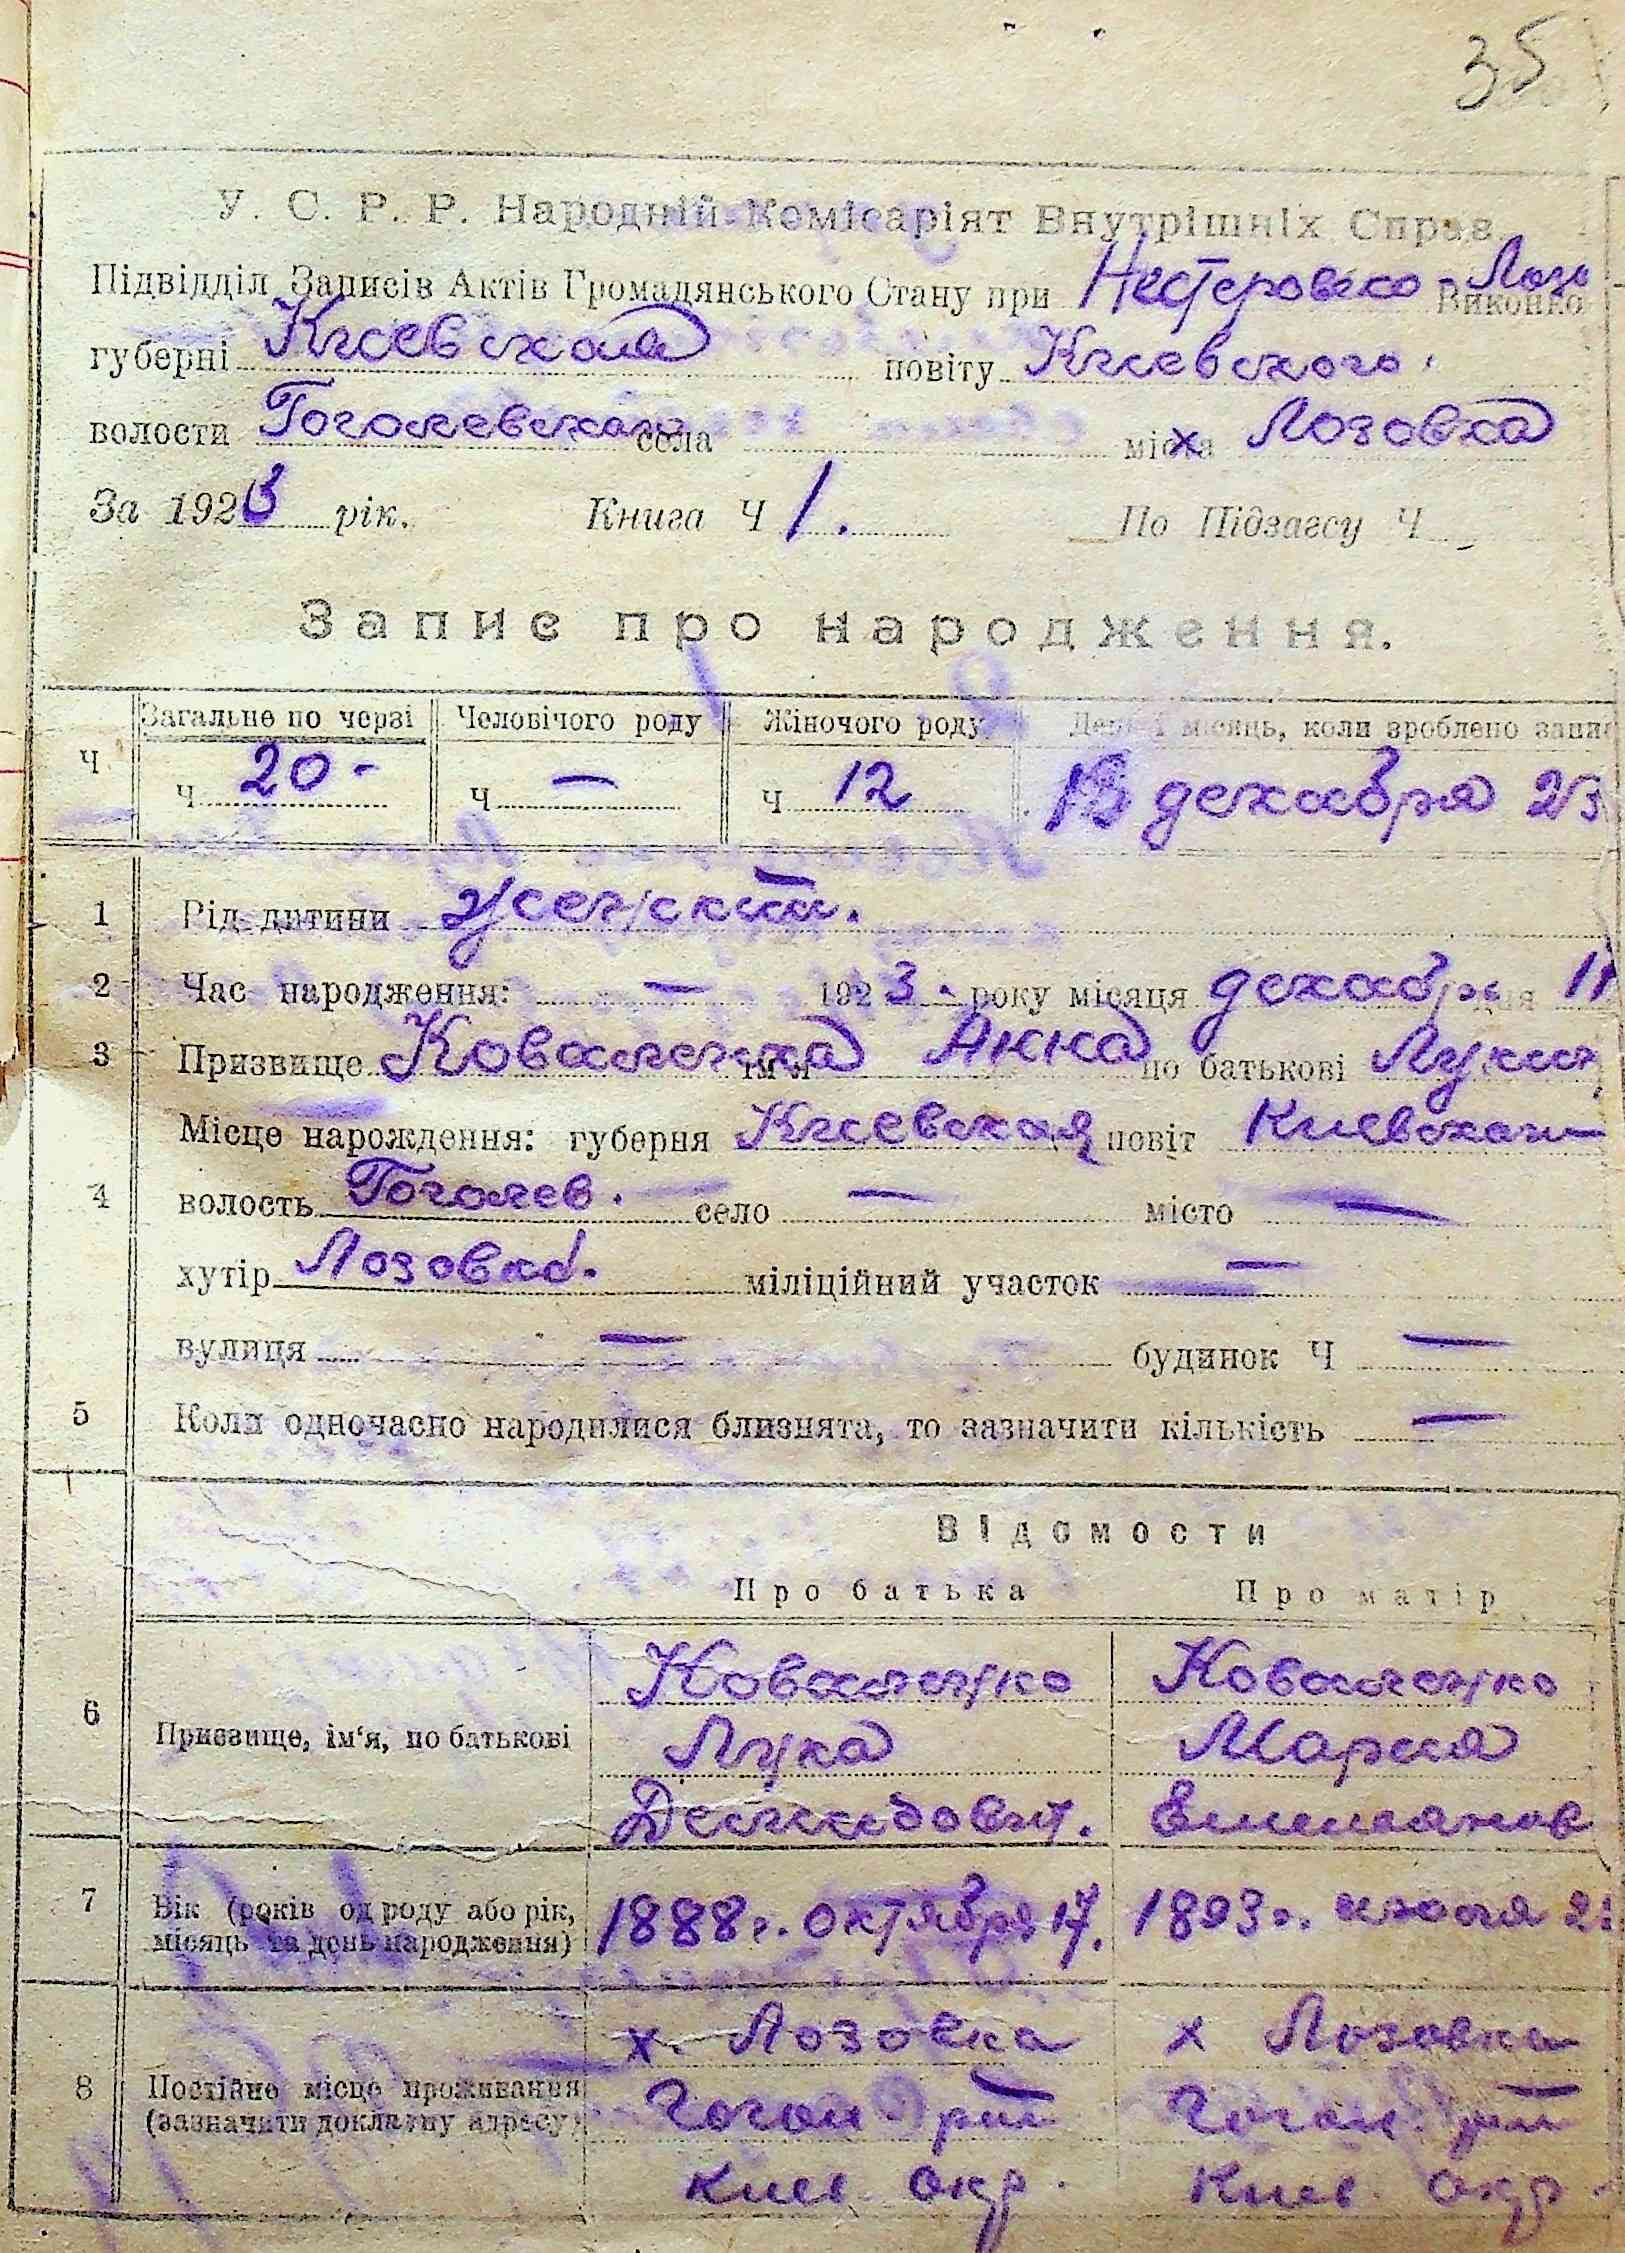 35
У. С. Р. Р. Народній Комісаріят Внутрішніх Справ
Підвідділ Записів Актів Громадянського Стану при Нестеровско-Лозо Виконко
губерні Киевская повіту Киевского
волости Гоголевская села міста х Лозовка
За 1923 рік. Книга Ч 1. По Підзагсу Ч
Запис про народження.
Загальне по черзі Человічого роду Жіночого роду День і місяць, коли зроблено запис
Ч Ч 20 - Ч — Ч 12 13 декабря 23
1 Рід дитини женский.
2 Час народження: — 1923. року місяця декабр дня 11
3 Призвище Коваленка ім'я Анна по батькові Лукин
Місце нарождення: губерня Киевская повіт Киевского
4 волость Гоголев. село — місто —
хутір Лозовка. міліційний участок —
вулиця — будинок Ч —
5 Коли одночасно народилися близнята, то зазначити кількість —
Відомости
Про батька Про матір
Коваленко Коваленко
6 Призвище, ім'я, по батькові Лука Мария
Демидович. Емельянов
7 Вік (років од роду або рік, місяць та день народження) 1888г. октября 17. 1893г. июля 2
х. Лозовка х Лозовка
8 Постійне місце проживання (зазначити докладну адресу) Гогол рай Гогол. рай
Киев. окр. Киев. окр.